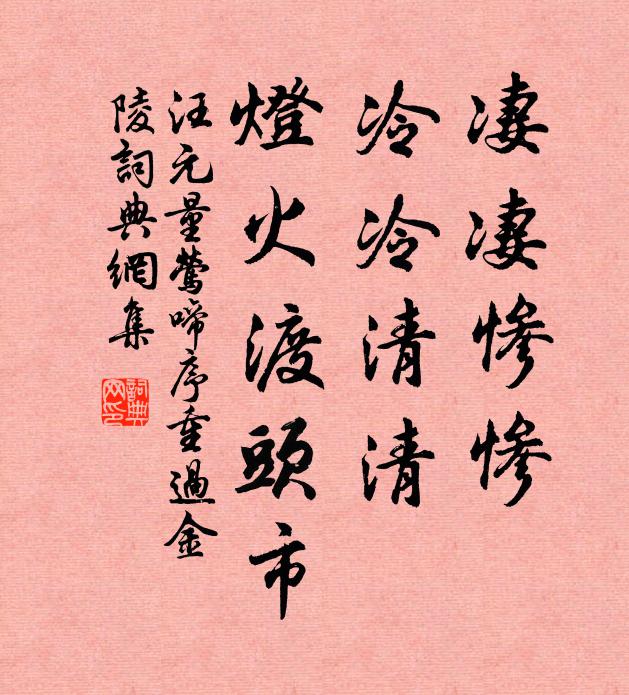 凄凄慘慘
冷冷清清
燈火渡頭市
汪元量鶯啼序重過金
陵詞典網集
詞典
网印